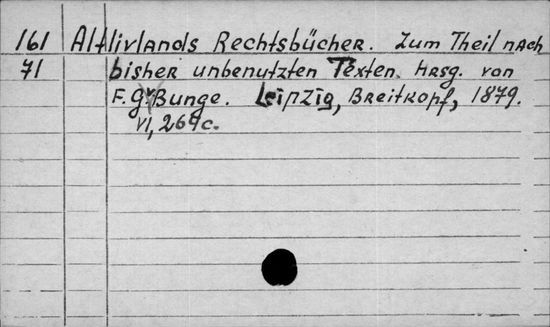 161 Altlivlands Rechtsbücher. Zum Theil nach
71 bisher unbenutzten Texten. Hrsg. von
F. G. v. Bunge. Leipzig, Breitkopf, 1879.
VI, 269 c.